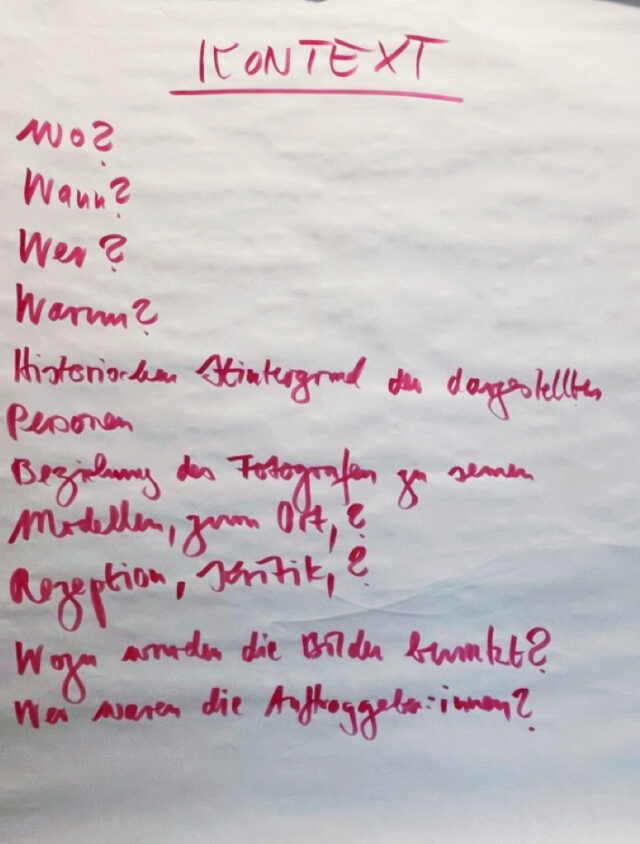 KONTEXT
Wo?
Wann?
Wer?
Warum?
Historischen Hintergrund der dargestellten
Personen
Beziehung des Fotografen zu seinen
Modellen, zum Ort, ?
Rezeption, Kritik, ?
Wozu wurden die Bilder benutzt?
Wer waren die Auftraggeber:innen?